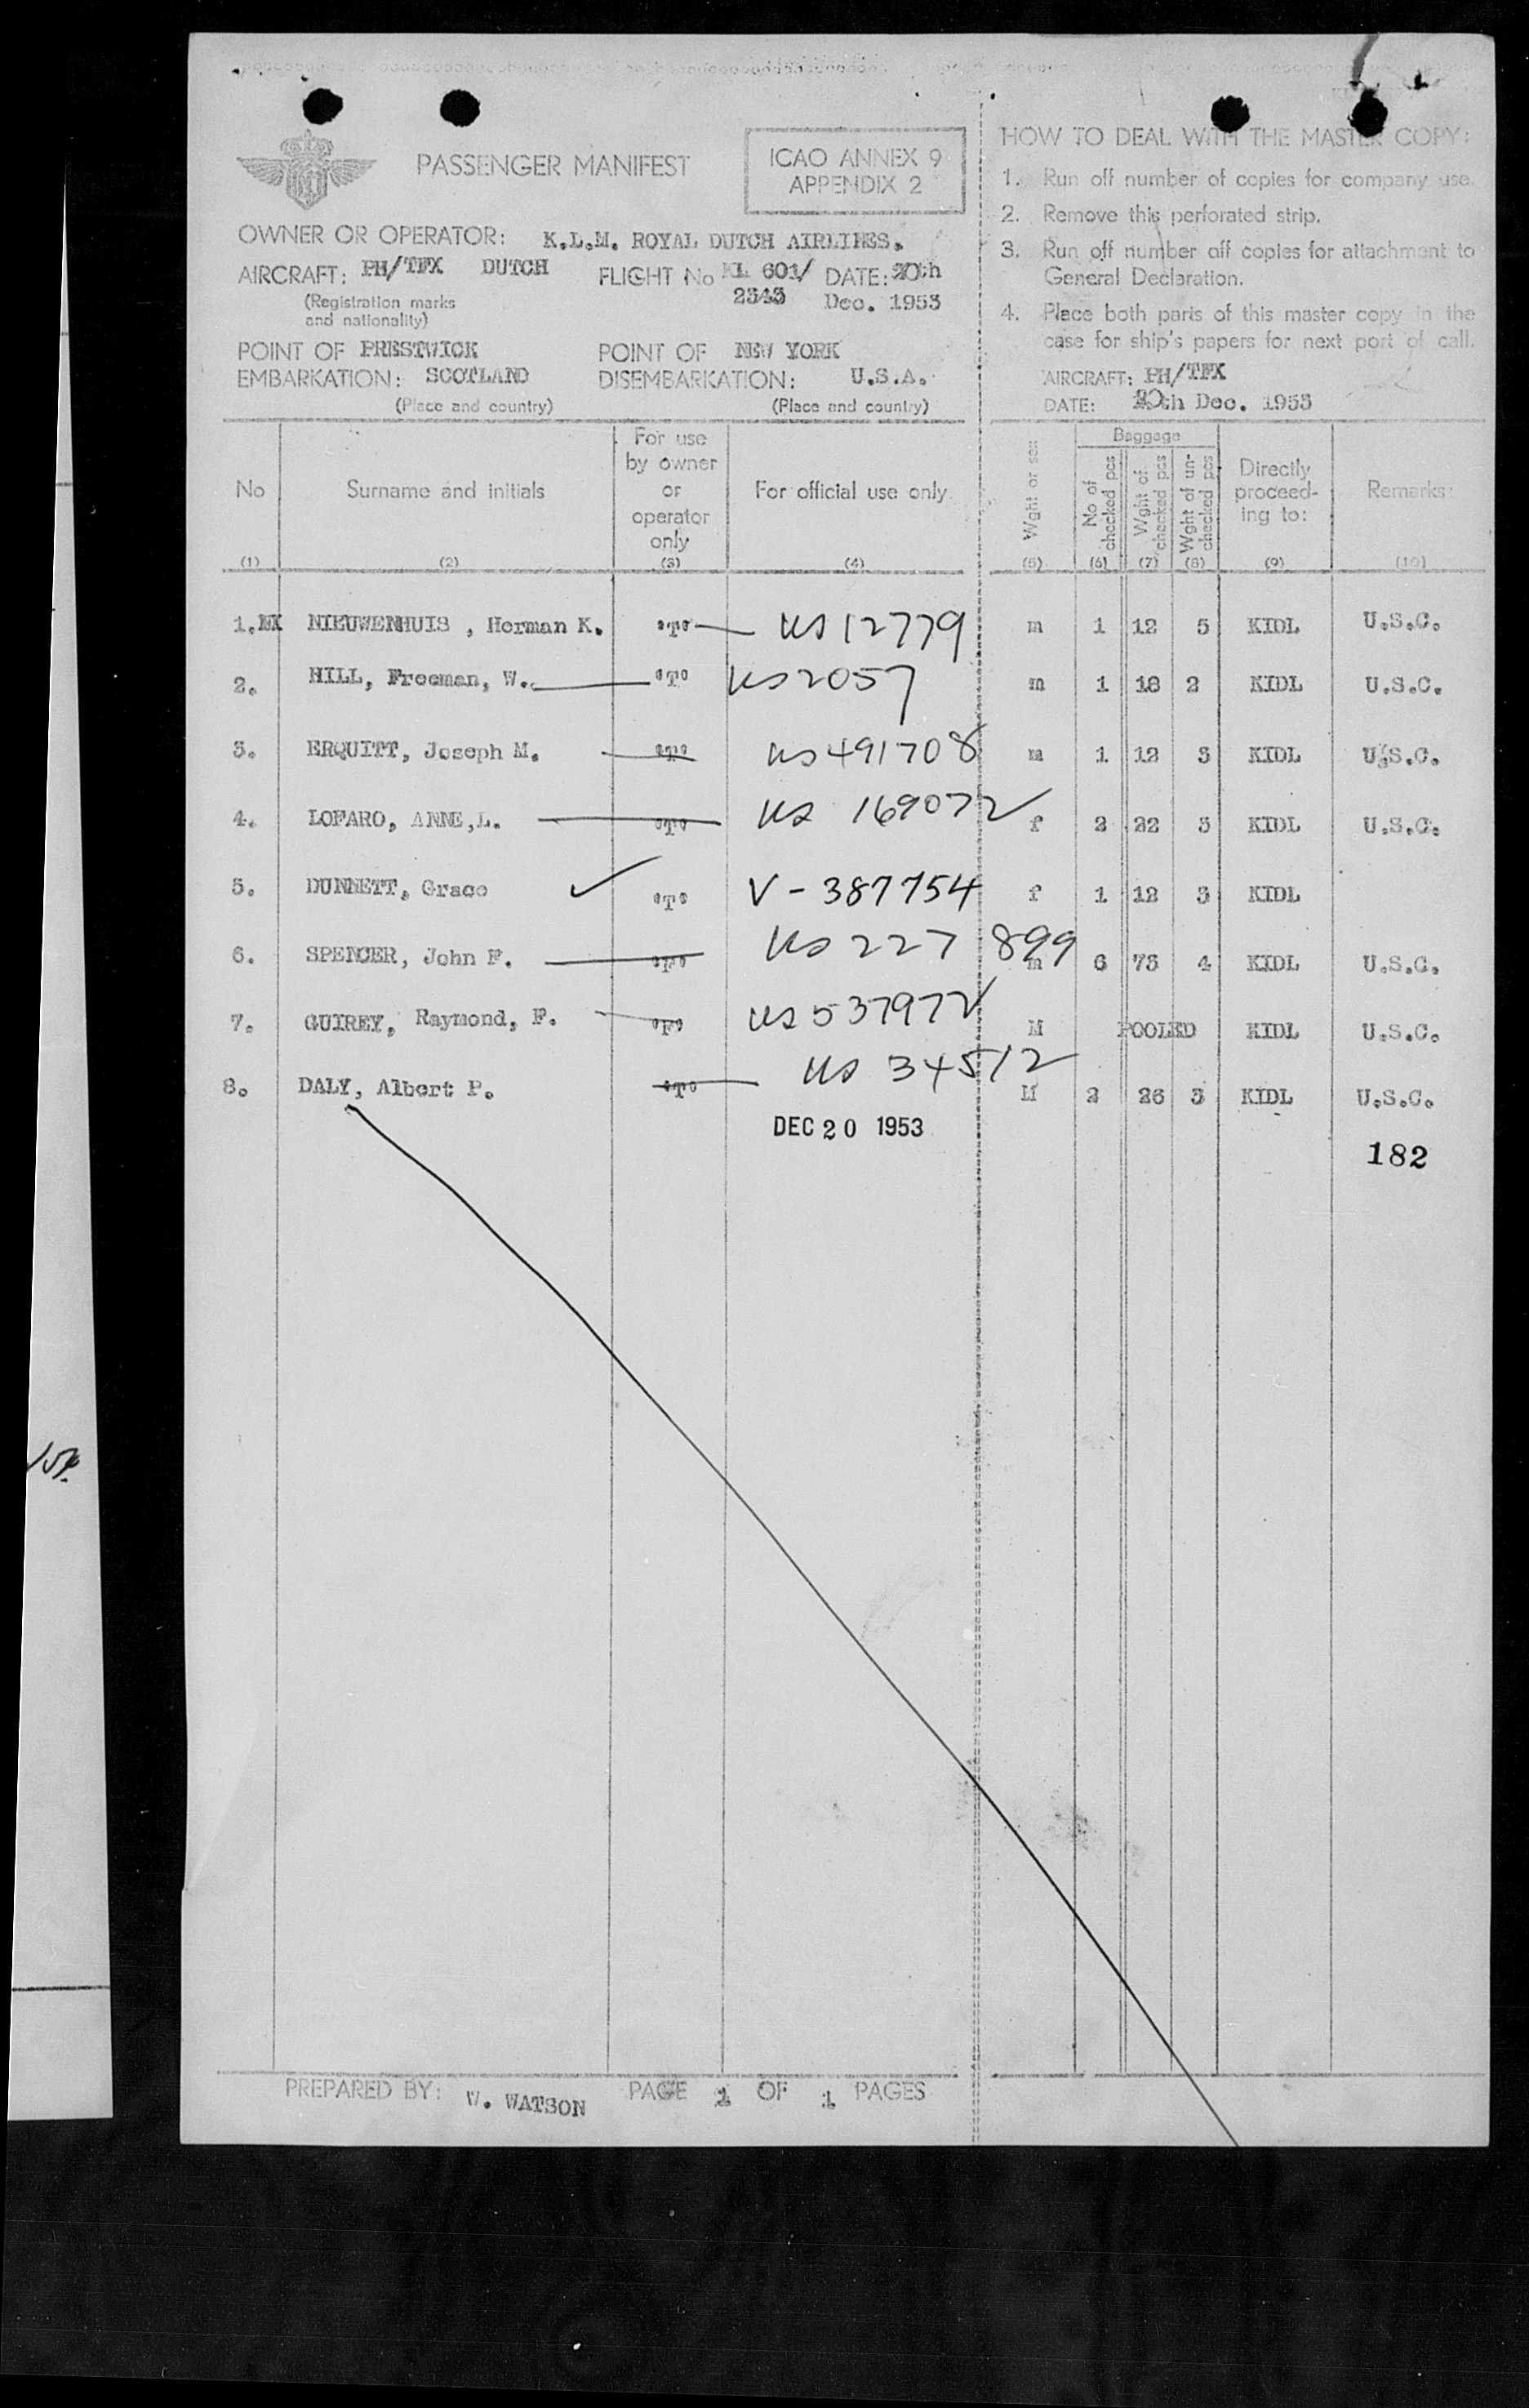 PASSENGER MANIFEST
ICAO ANNEX 9
APPENDIX 2
OWNER OR OPERATOR: K.L.M. ROYAL DUTCH AIRLINES.
AIRCRAFT: PH/TFX DUTCH FLIGHT No KL 601/ DATE: 20th
(Registration marks 2343 Dec. 1953
and nationality)
POINT OF PRESTWICK POINT OF NEW YORK
EMBARKATION: SCOTLAND DISEMBARKATION: U.S.A.
(Place and country) (Place and country)
HOW TO DEAL WITH THE MASTER COPY:
1. Run off number of copies for company use.
2. Remove this perforated strip.
3. Run off number off copies for attachment to
General Declaration.
4. Place both parts of this master copy in the
case for ship's papers for next port of call.
AIRCRAFT: PH/TFX
DATE: 20th Dec. 1953
No
(1)
Surname and initials
(2)
For use
by owner
or
operator
only
(3)
For official use only
(4)
Wght or sex
(5)
Baggage
No of
checked pcs
(6)
Wght of
checked pcs
(7)
Wght of un-
checked pcs
(8)
Directly
proceed-
ing to:
(9)
Remarks:
(10)
1. NIEUWENHUIS , Herman K. "T" US 12779 m 1 12 5 KIDL U.S.C.
2. HILL, Freeman, W. "T" US 2057 m 1 18 2 KIDL U.S.C.
3. ERQUITT, Joseph M. "T" US 491708 m 1 12 3 KIDL U.S.C.
4. LOFARO, ANNE,L. "T" US 169072 f 2 22 3 KIDL U.S.C.
5. DUNNETT, Grace ✓ "T" V - 387754 f 1 12 3 KIDL
6. SPENCER, John F. "F" US 227 899 m 6 73 4 KIDL U.S.C.
7. GUIREY, Raymond, F. "F" US 537972 M POOLED KIDL U.S.C.
8. DALY, Albert P. "T" US 34512 M 2 26 3 KIDL U.S.C.
DEC 20 1953
182
PREPARED BY: W. WATSON PAGE 1 OF 1 PAGES